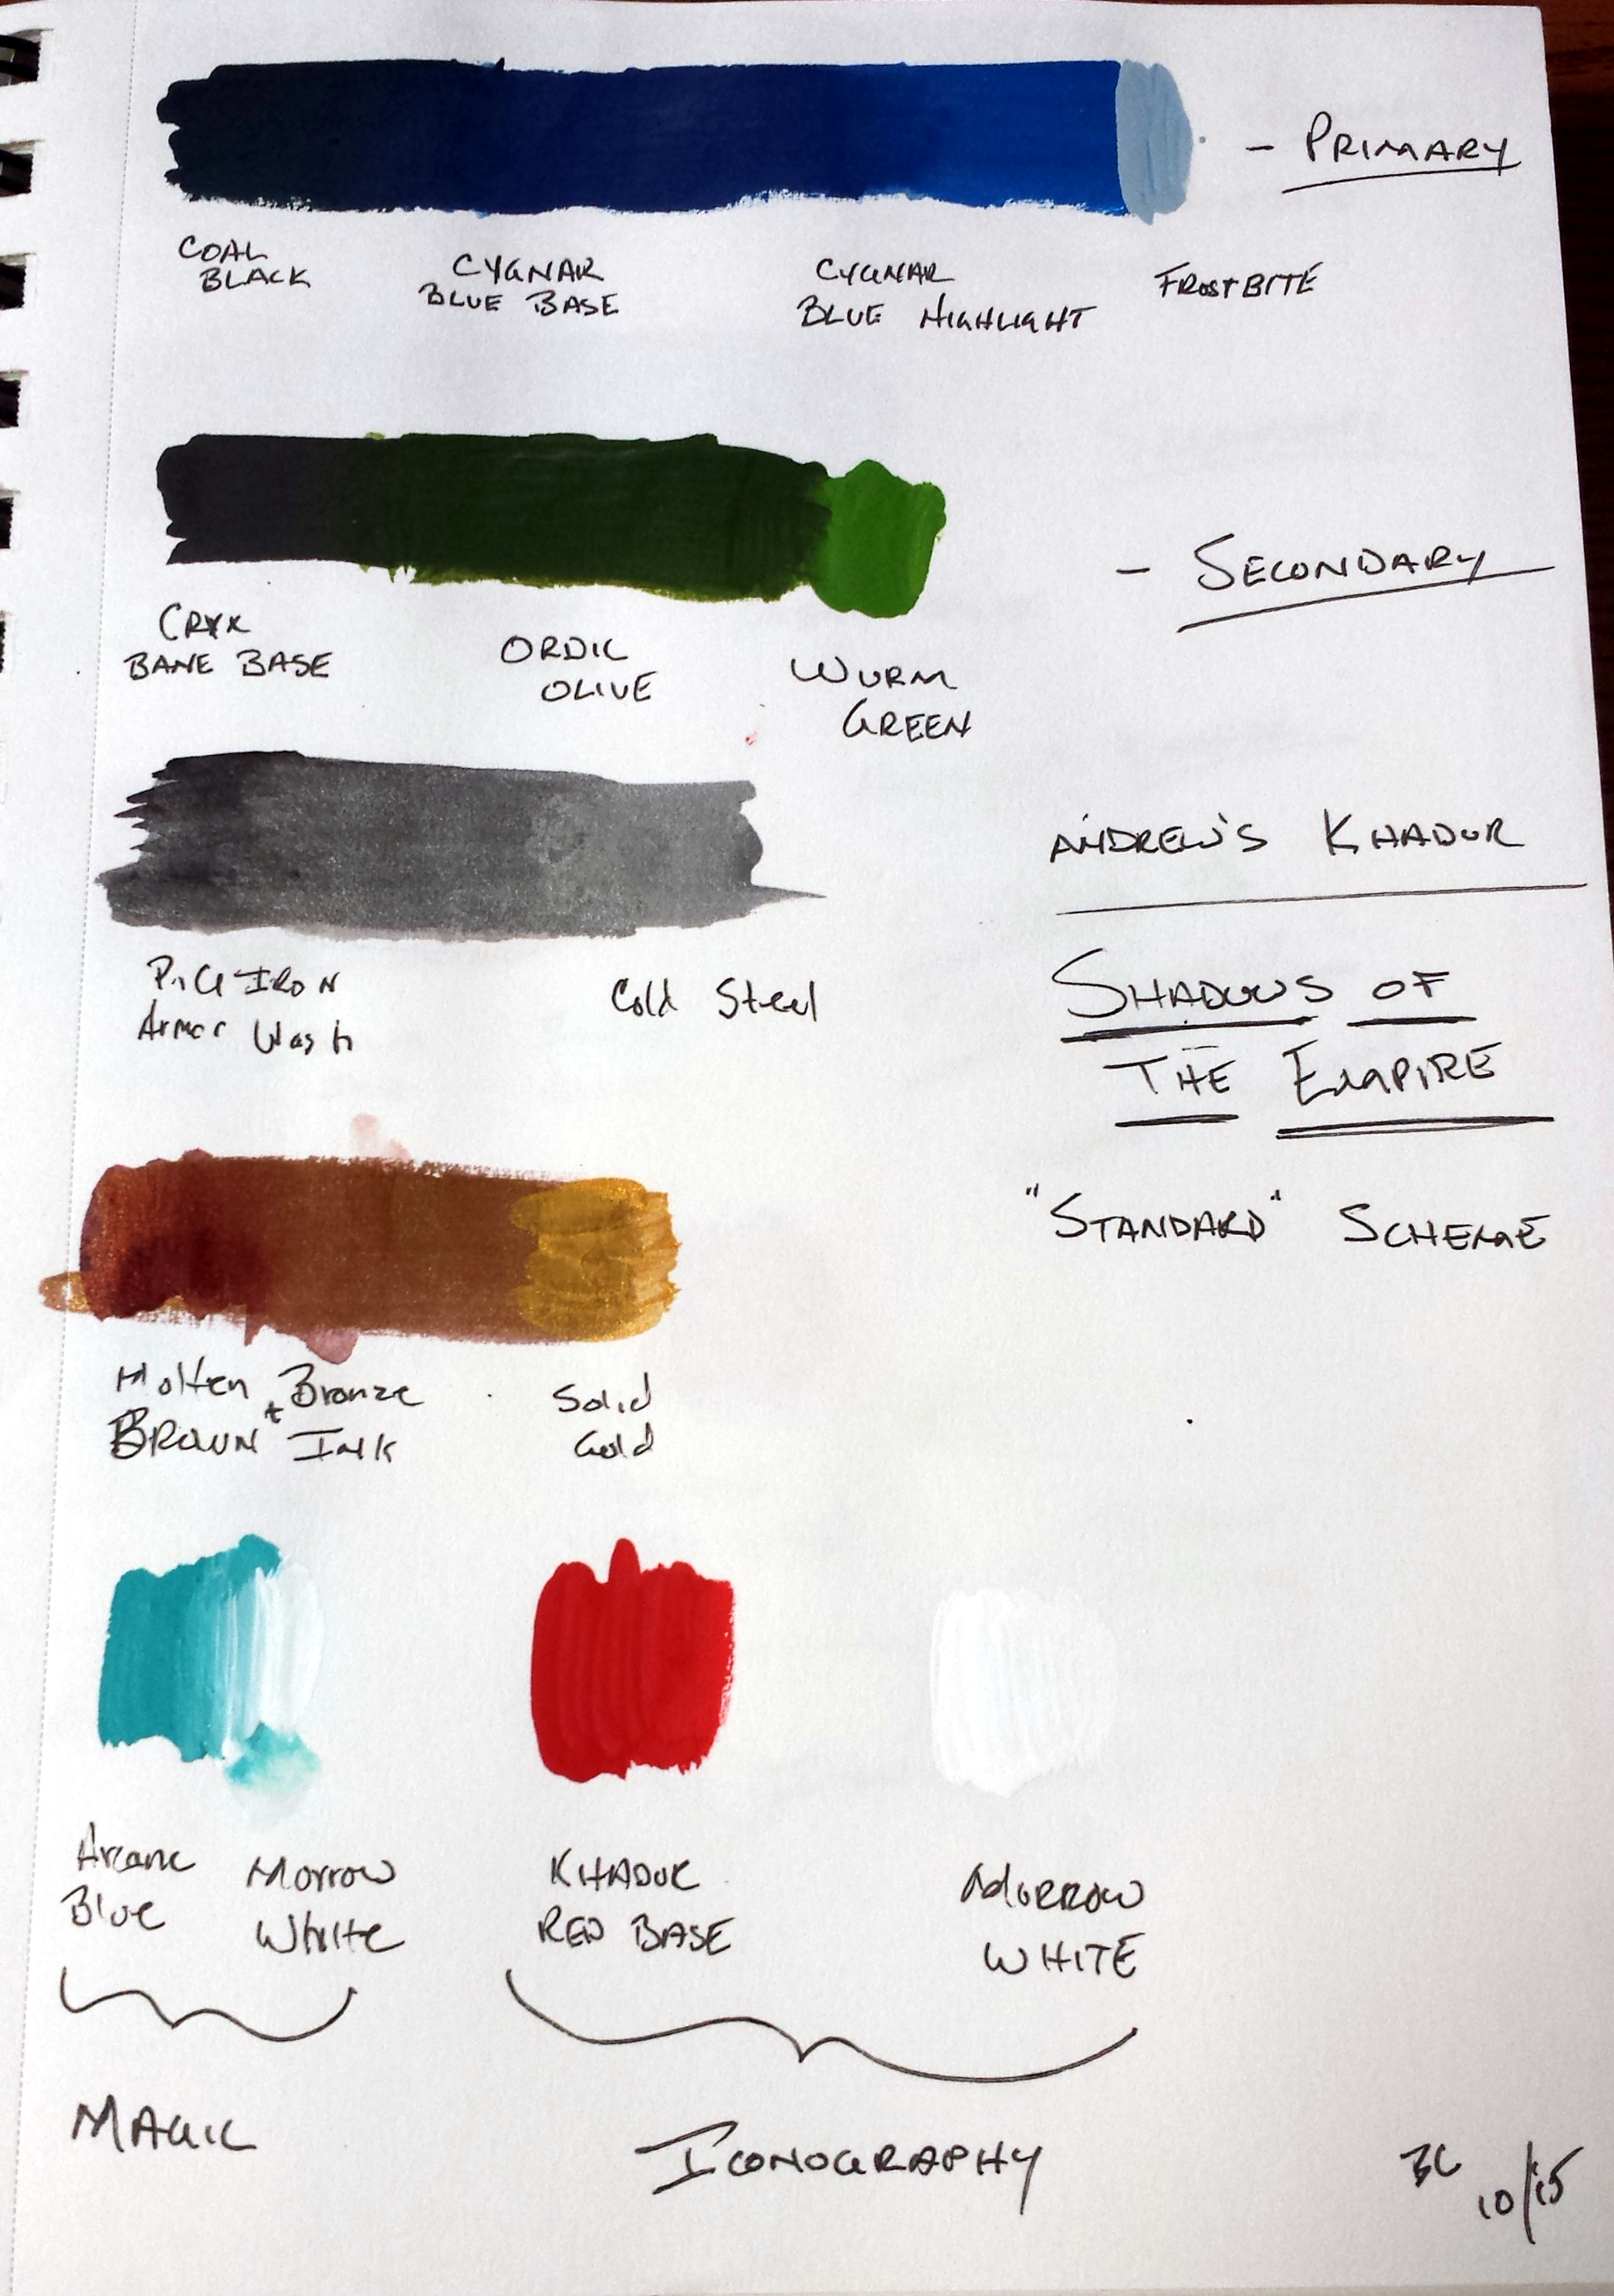 - PRIMARY
COAL
BLACK
CYGNAR
BLUE BASE
CYGNAR
BLUE HIGHLIGHT
FROSTBITE
- SECONDARY
CRYX
BANE BASE
ORDIC
OLIVE
WURM
GREEN
ANDREW'S KHADOR
SHADOWS OF
THE EMPIRE
"STANDARD" SCHEME
PIG IRON
Armor Wash
Cold Steel
Molten Bronze
BROWN + INK
Solid
Gold
Arcane
Blue
Morrow
White
KHADOR
RED BASE
MORROW
WHITE
MAGIC
ICONOGRAPHY
BC
10/15